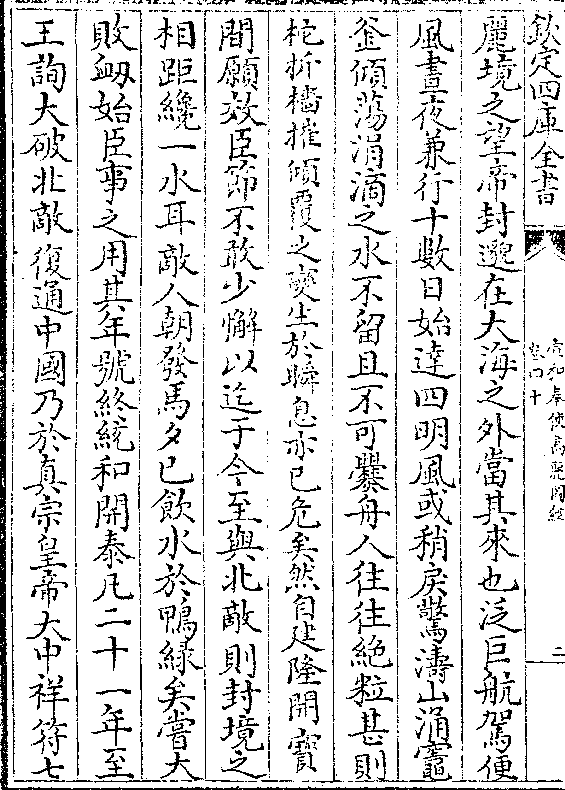 欽定四庫全書
宣和奉使高麗圖經
卷四十
二
麗境之望帝封邈在大海之外當其來也泛巨航駕便
風晝夜兼行十數日始達四明風或稍戾驚濤山涌竈
釜傾蕩涓滴之水不留且不可爨舟人往往絶粒甚則
柁折檣摧傾覆之變生於瞬息亦已危矣然自建隆開寶
間願效臣節不敢少懈以迄于今至與北敵則封境之
相距纔一水耳敵人朝發馬夕已飲水於鴨緑矣嘗大
敗衂始臣事之用其年號終統和開泰凡二十一年至
王詢大破北敵復通中國乃於真宗皇帝大中祥符七